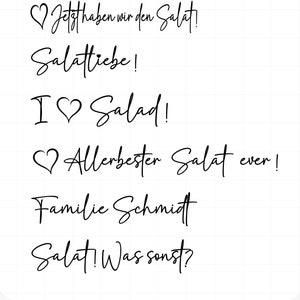 ♡ Jetzt haben wir den Salat!
Salatliebe!
I ♡ Salad!
♡ Allerbester Salat ever!
Familie Schmidt
Salat! Was sonst?